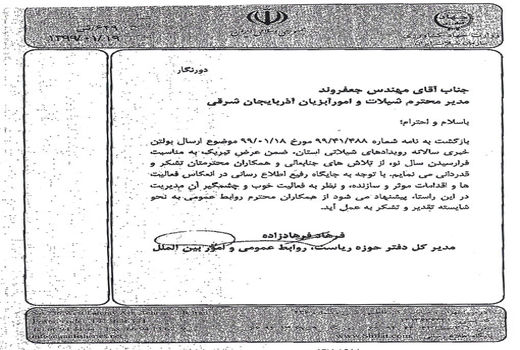 جمهوری اسلامی ایران
۱۳۹۹/۰۱/۱۹
دورنگار
جناب آقای مهندس جعفروند
مدیر محترم شیلات و امورآبزیان آذربایجان شرقی
باسلام و احترام؛
بازگشت به نامه شماره ۹۹/۴۱/۴۸۸ مورخ ۹۹/۰۱/۱۸ موضوع ارسال بولتن
خبری سالانه رویدادهای شیلاتی استان، ضمن عرض تبریک به مناسبت
فرارسیدن سال نو، از تلاش های جنابعالی و همکاران محترمتان تشکر و
قدردانی می نمایم. با توجه به جایگاه رفیع اطلاع رسانی در انعکاس فعالیت
ها و اقدامات موثر و سازنده، و نظر به فعالیت خوب و چشمگیر آن مدیریت
در این راستا، پیشنهاد می شود از همکاران محترم روابط عمومی به نحو
شایسته تقدیر و تشکر به عمل آید.
فرهاد فرهادزاده
مدیر کل دفتر حوزه ریاست، روابط عمومی و امور بین الملل